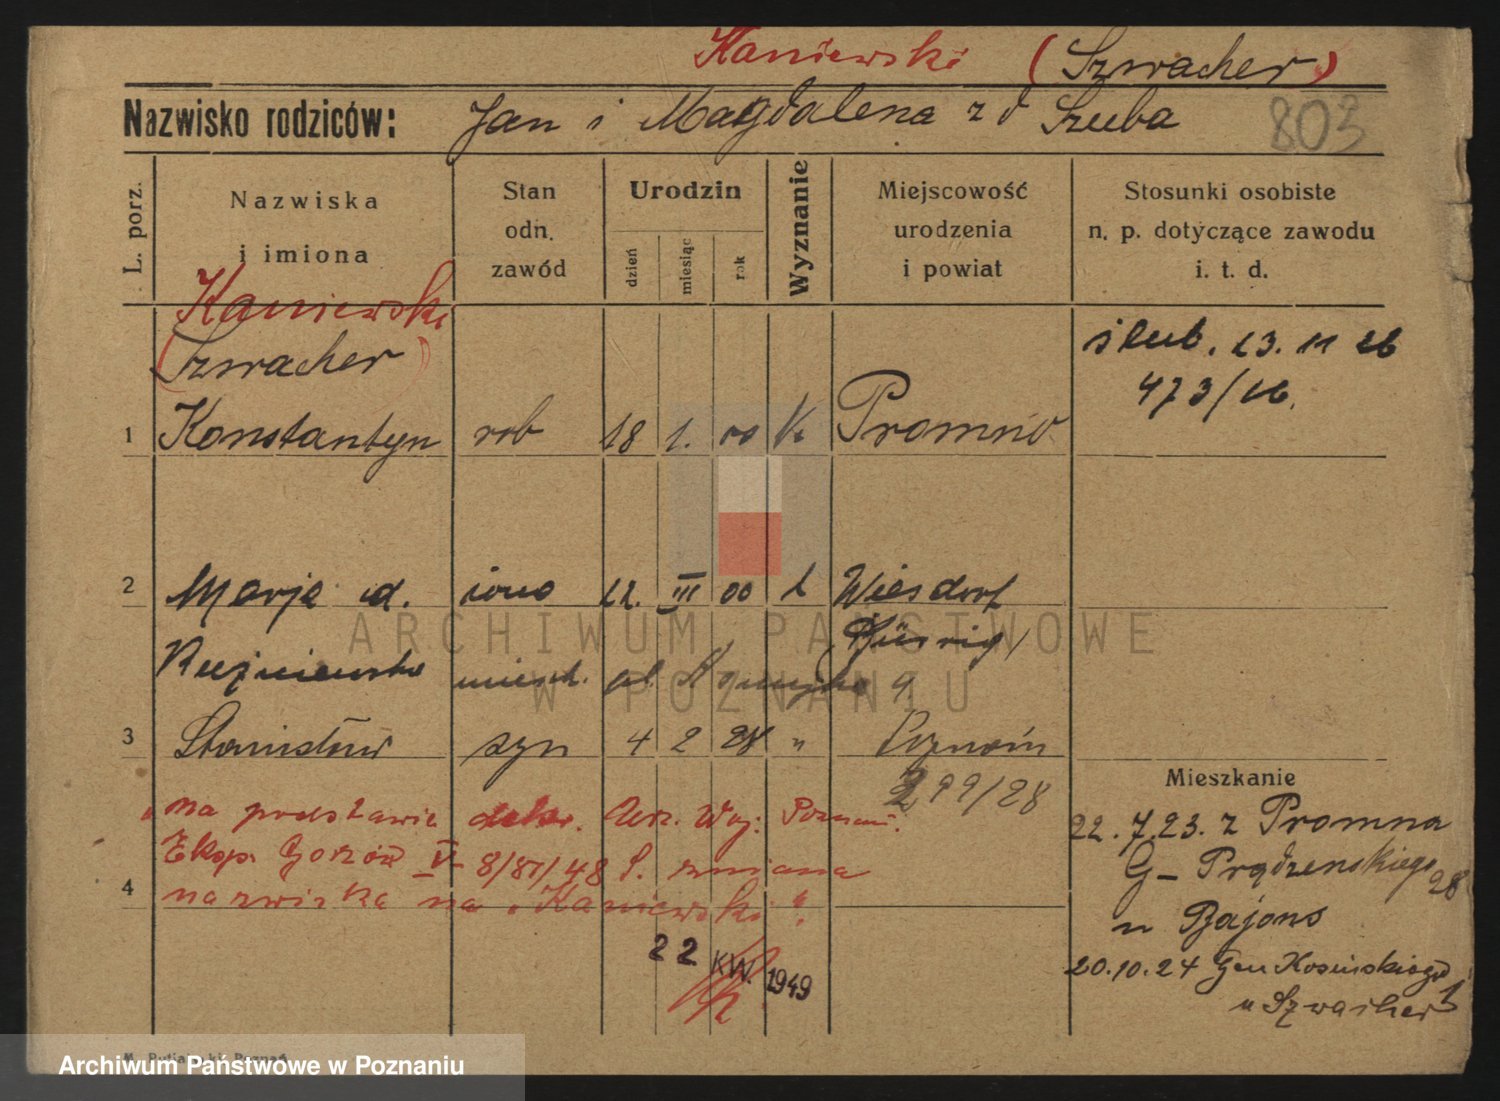 Kaniewski (Szwacher)
Nazwisko rodziców: Jan i Magdalena z d Szuba 803
L. porz.
Nazwiska i imiona
Stan odn. zawód
Urodzin
dzień miesiąc rok
Wyznanie
Miejscowość urodzenia i powiat
Stosunki osobiste n. p. dotyczące zawodu i. t. d.
Kaniewski
(Szwacher)
1 Konstantyn rob 18 1. 00 k Promno
ślub. 23. 11 26
473/26.
2 Marja d. żona 22. III 00 k Wiesdorf
9
3 Stanisław syn 4 2 28 " Poznań
299/28
"na podstawie dekr. Urz. Woj. Poznań.
Eksp. Gorzów V 8/81/48 S. zmiana
4 nazwiska na "Kaniewski".
22 KW. 1949
Mieszkanie
22. 7.23. z Promna
G- Prądzenskiego 28
u Bajons
20.10.24 Gen Kosińskiego 1
u Szwacher
M. Putiatycki, Poznań
ARCHIWUM PAŃSTWOWE
W POZNANIU
Archiwum Państwowe w Poznaniu